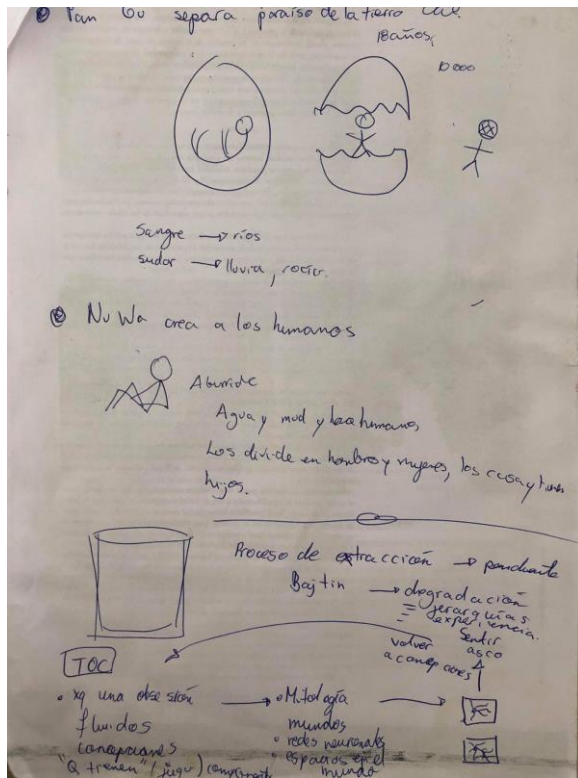 Pan Gu separa paraiso de la tierra
18 años,
10 000
Sangre → ríos
sudor → lluvia, rocío.
Nu Wa crea a los humanos
Aburride
Agua y mud y hace humanos,
Los divide en hombres y mujeres, los casa y tienen
hijos.
Proceso de extracción → pendiente
Bajtin → degradación
= jerarquías
= experiencia.
Sentir
asco
volver
a concepciones
TOC
• xq una obsesión → • Mitología
fluidos mundos
concepciones • redes neuronales
"Q tienen" / jugu) • espacios en el
mundo